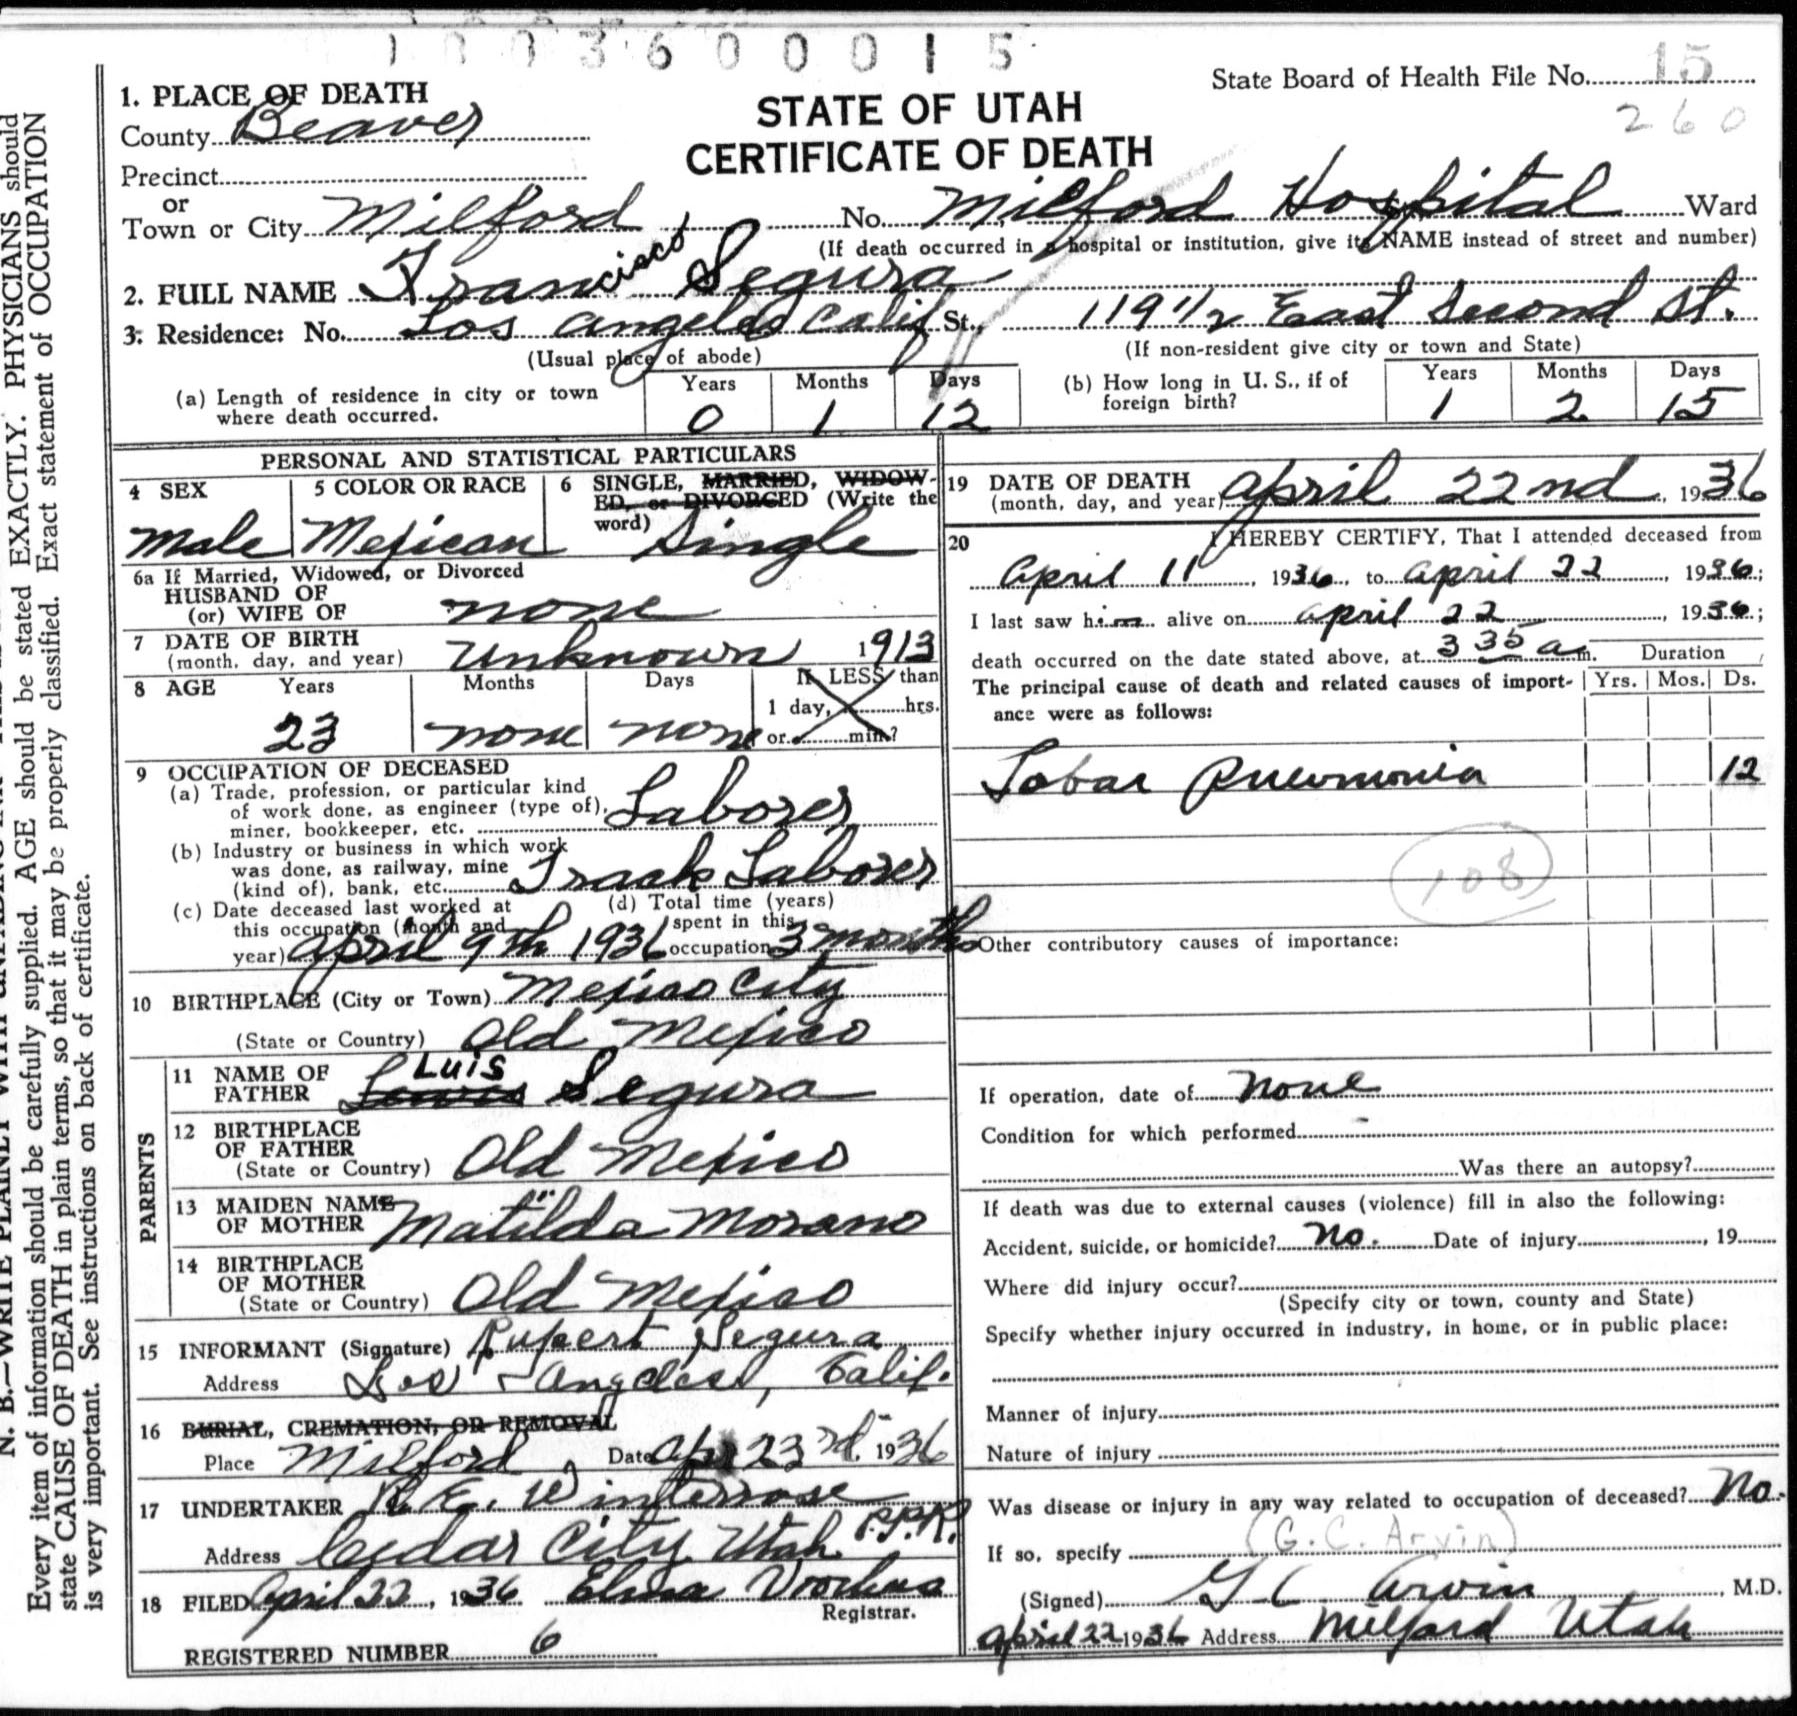 1 0 0 3 6 0 0 0 1 5
State Board of Health File No. 15
260
STATE OF UTAH
CERTIFICATE OF DEATH
1. PLACE OF DEATH
County Beaver
Precinct
or
Town or City Milford No. Milford Hospital Ward
(If death occurred in a hospital or institution, give its NAME instead of street and number)
2. FULL NAME Francisco Segura
3. Residence: No. Los Angeles Calif St., 119 1/2 East Second St.
(Usual place of abode) (If non-resident give city or town and State)
(a) Length of residence in city or town where death occurred. Years 0 Months 1 Days 12
(b) How long in U. S., if of foreign birth? Years 1 Months 2 Days 15
PERSONAL AND STATISTICAL PARTICULARS
4 SEX Male
5 COLOR OR RACE Mexican
6 SINGLE, MARRIED, WIDOW-
ED, or DIVORCED (Write the
word) Single
6a If Married, Widowed, or Divorced
HUSBAND OF
(or) WIFE OF none
7 DATE OF BIRTH
(month, day, and year) Unknown 1913
8 AGE Years 23 Months none Days none
If LESS than
1 day, hrs.
or min.?
9 OCCUPATION OF DECEASED
(a) Trade, profession, or particular kind
of work done, as engineer (type of),
miner, bookkeeper, etc. Laborer
(b) Industry or business in which work
was done, as railway, mine
(kind of), bank, etc. Track Laborer
(c) Date deceased last worked at
this occupation (month and
year) April 9th 1936
(d) Total time (years)
spent in this
occupation 3 months
10 BIRTHPLACE (City or Town) Mexico City
(State or Country) Old Mexico
PARENTS
11 NAME OF
FATHER Lewis Luis Segura
12 BIRTHPLACE
OF FATHER
(State or Country) Old Mexico
13 MAIDEN NAME
OF MOTHER Matilda Morano
14 BIRTHPLACE
OF MOTHER
(State or Country) Old Mexico
15 INFORMANT (Signature) Rupert Segura
Address Los Angeles, Calif.
16 BURIAL, CREMATION, OR REMOVAL
Place Milford Date Apr 23rd 1936
17 UNDERTAKER E. Winterrose
Address Cedar City Utah P.P.R.
18 FILED April 22, 1936. Elma
Registrar.
REGISTERED NUMBER 6
19 DATE OF DEATH
(month, day, and year) April 22nd, 1936
20 I HEREBY CERTIFY, That I attended deceased from
April 11, 1936, to April 22, 1936;
I last saw him alive on April 22, 1936;
death occurred on the date stated above, at 3 35 a m.
The principal cause of death and related causes of import-
ance were as follows:
Duration
Yrs. Mos. Ds.
Lobar Pneumonia 12
108
Other contributory causes of importance:
If operation, date of none
Condition for which performed
Was there an autopsy?
If death was due to external causes (violence) fill in also the following:
Accident, suicide, or homicide? No. Date of injury, 19
Where did injury occur?
(Specify city or town, county and State)
Specify whether injury occurred in industry, in home, or in public place:
Manner of injury
Nature of injury
Was disease or injury in any way related to occupation of deceased? No.
If so, specify (G. C. Arvin)
(Signed) G C Arvin, M.D.
April 22 1936 Address Milford Utah
N. B.—WRITE PLAINLY WITH UNFADING INK
Every item of information should be carefully supplied. AGE should be stated EXACTLY. PHYSICIANS should
state CAUSE OF DEATH in plain terms, so that it may be properly classified. Exact statement of OCCUPATION
is very important. See instructions on back of certificate.